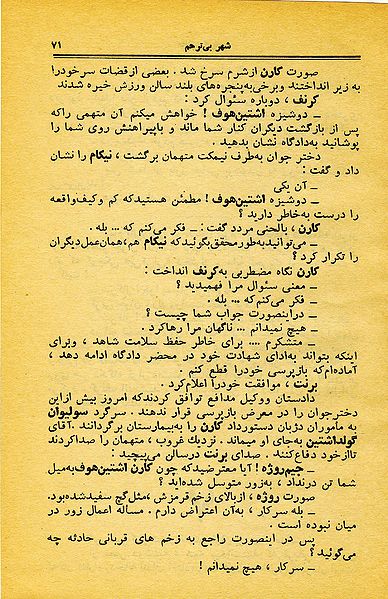 شهر بی‌ترحم ۷۱
صورت کارن ازشرم سرخ شد . بعضی ازقضات سرخودرا
به زیر انداختند وبرخی‌به‌پنجره‌های بلند سالن ورزش خیره شدند
گرنف ، دوباره سئوال کرد :
ــ دوشیزه اشتین‌هوف ! خواهش میکنم آن متهمی راکه
پس از بازگشت دیگران کنار شما ماند و باپیراهنش روی شما را
پوشانید به‌دادگاه نشان بدهید .
دختر جوان به‌طرف نیمکت متهمان برگشت ، نیکام را نشان
داد و گفت :
ــ آن یکی
ــ دوشیزه اشتین‌هوف ! مطمئن هستیدکه کم وکیف‌واقعه
را درست به‌خاطر دارید ؟
کارن ، بالحنی مردد گفت : ــ فکر می‌کنم که ... بله .
ــ می‌توانیدبه‌طورمحقق‌بگوئیدکه نیکام هم،همان‌عمل‌دیگران
را تکرار کرد ؟
کارن نگاه مضطربی به‌گرنف انداخت :
ــ معنی سئوال مرا فهمیدید ؟
ــ فکر می‌کنم‌که ... بله .
ــ دراینصورت جواب شما چیست ؟
ــ هیچ نمیدانم ... ناگهان مرا رهاکرد .
ــ متشکرم .... برای خاطر حفظ سلامت شاهد ، وبرای
اینکه بتواند به‌ادای شهادت خود در محضر دادگاه ادامه دهد ،
آماده‌ام‌که بازپرسی خودرا قطع کنم .
برنت ، موافقت خودرا اعلام‌کرد .
دادستان ووکیل مدافع توافق کردندکه امروز بیش ازاین
دخترجوان را در معرض بازپرسی قرار ندهند . سرگرد سولیوان
به ماموران دژبان دستورداد کارن را به‌بیمارستان برگردانند .آقای
گولداشتین به‌جای او میماند . نزدیک غروب ، متهمان را صداکردند
تاازخود دفاع‌کنند . صدای برنت درسالن می‌پیچید :
ــ جیم‌روژه ! آیا معترضیدکه چون کارن اشتین‌هوف‌به‌میل
شما تن درنداد ، به‌زور متوسل شده‌اید ؟
صورت روژه ، ازبالای زخم قرمزش ،مثل‌گچ سفیدشده‌بود.
ــ بله سرکار ، به‌آن اعتراض دارم . مسأله اعمال زور در
میان نبوده است .
پس در اینصورت راجع به زخم های قربانی حادثه چه
می‌گوئید ؟
ــ سرکار ، هیچ نمیدانم !